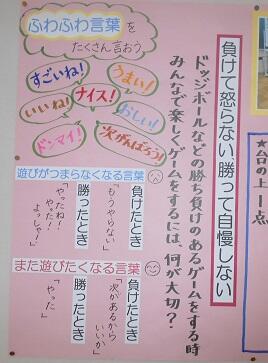 負けて怒らない勝って自慢しない
ドッジボールなどの勝ち負けのあるゲームをする時
みんなで楽しくゲームをするには、何が大切?
ふわふわ言葉を
たくさん言おう
すごいね!
うまい!
いいね!
ナイス!
おしい!
ドンマイ!
次がんばろう!
遊びがつまらなくなる言葉
負けたとき
「もうやらない」
勝ったとき
「やったね!
やった!
よっしゃ!」
また遊びたくなる言葉
負けたとき
「次があるから
いいか」
勝ったとき
「やった」
★台の上 1点